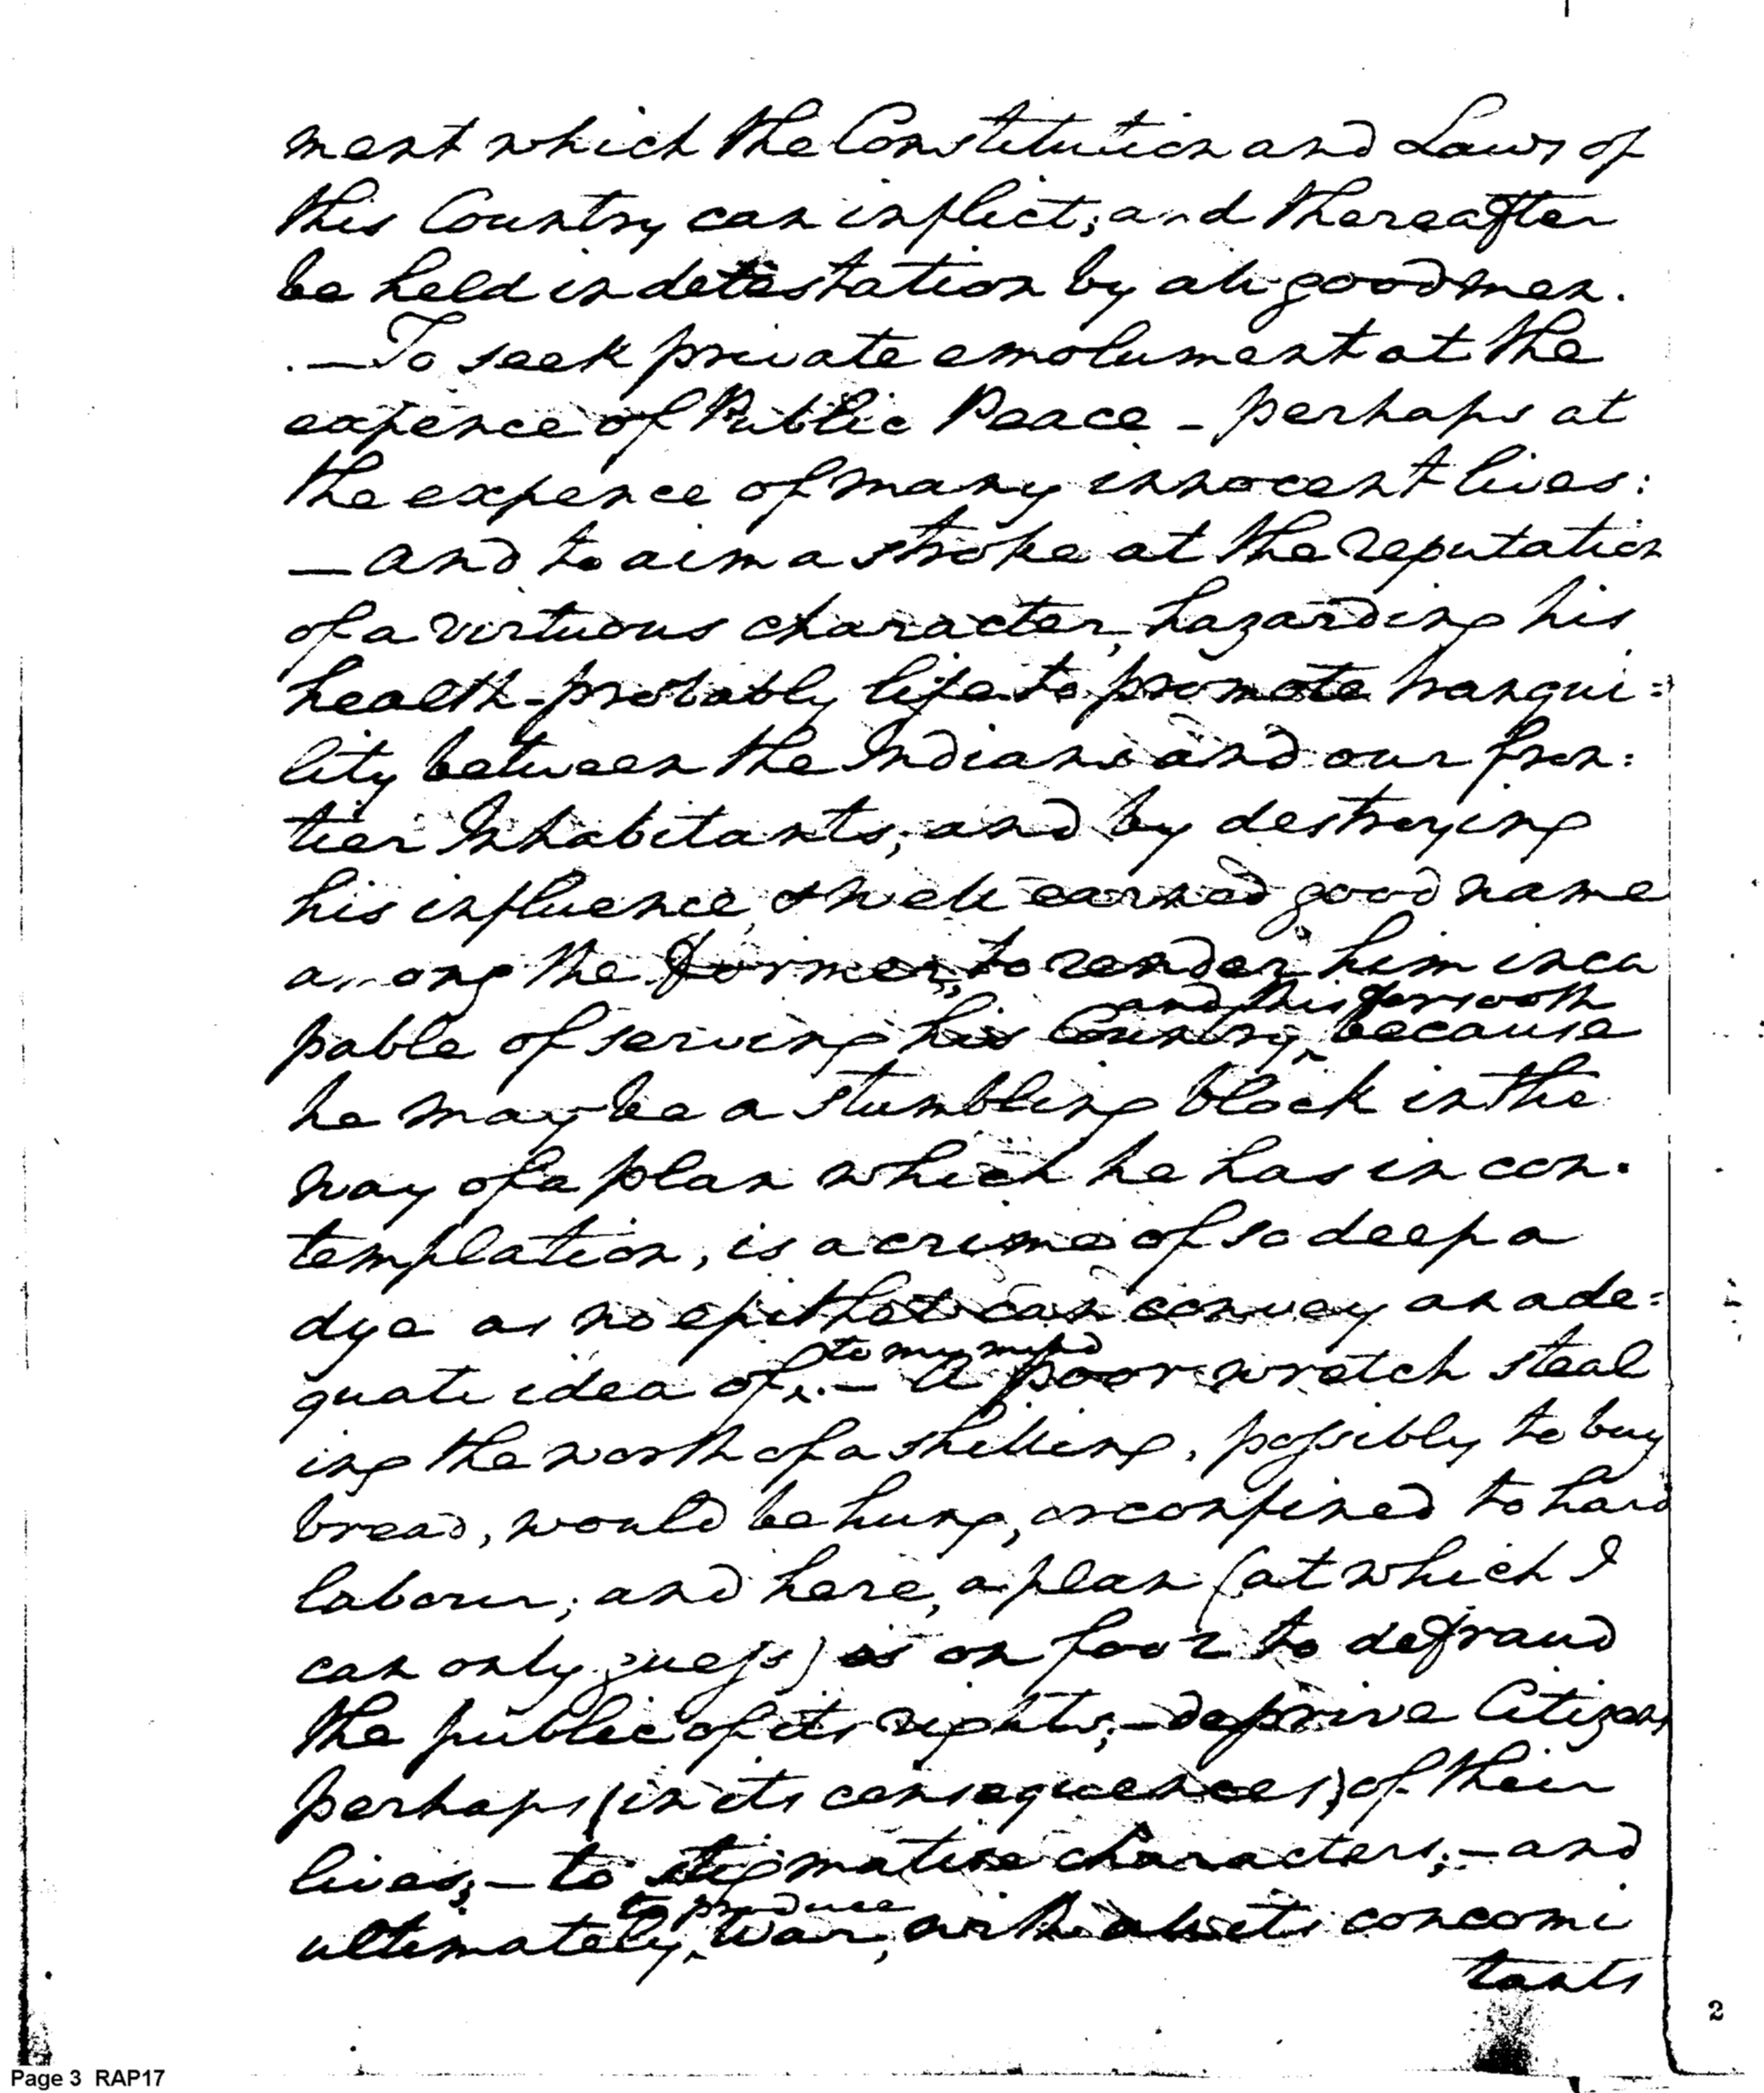 ment which the Constitution and Laws of
this Country can inflict; and thereafter
be held in detestation by all good men.
.—To seek private emolument at the
expence of Public Peace – perhaps at
the expence of many innocent lives:
— and to aim a stroke at the reputation
of a virtuous character, hazarding his
health – probably life to promote tranqui=
lity between the Indians and our fron:
tier Inhabitants; and by destroying
his influence, & well earned good name
among the former, to render him inca
and this forsooth
pable of serving his Country, because
he may be a stumbling block in the
way of a plan which he has in con.
templation, is a crime of so deep a
dye as no epithet can convey an ade=
to my mind
quate idea of. – A poor wretch steal
ing the worth of a shilling, possibly to buy
bread, would be hung, or confined to hard
labour; and here, a plan (at which I
can only guess) is on foot to defraud
the public of its rights; – deprive Citizens
perhaps (in its consequences) of their
lives; – to stigmatise characters; – and
to produce
ultimately, War, with all its concomi
tants
2
Page 3 RAP17